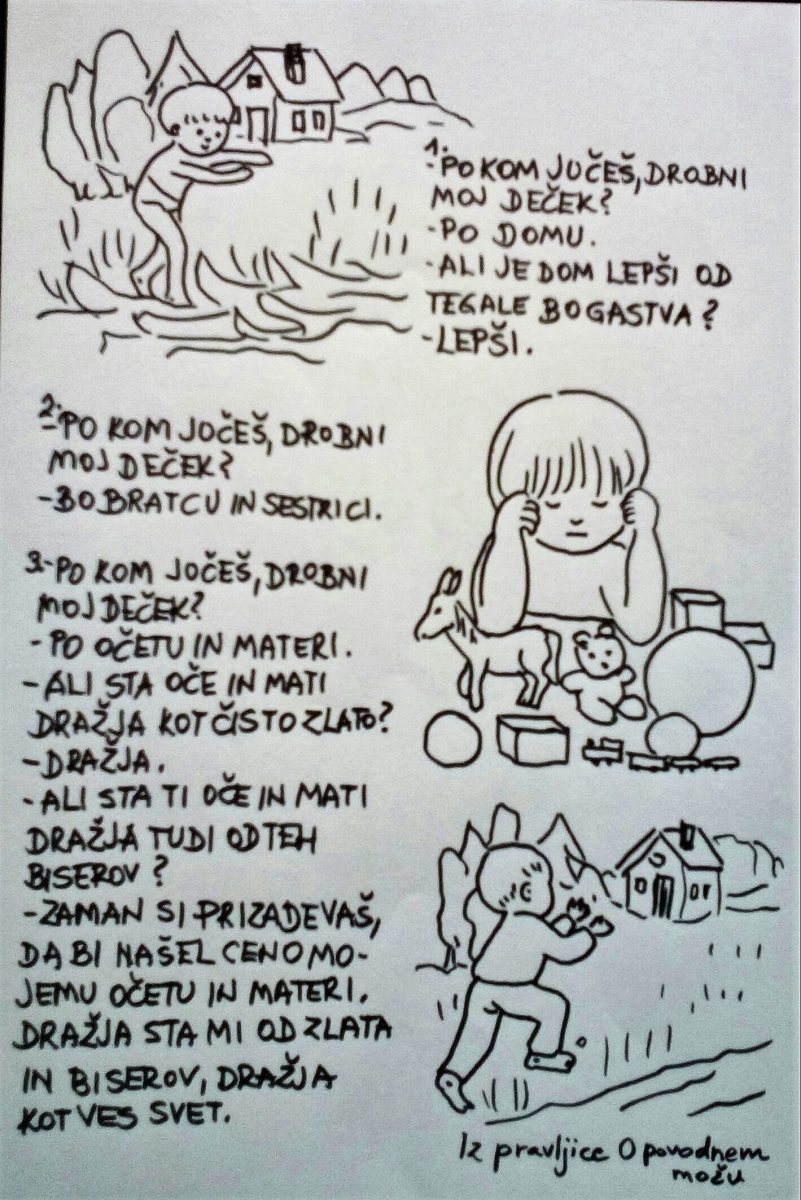 1.
-PO KOM JOČEŠ, DROBNI
MOJ DEČEK?
-PO DOMU.
-ALI JE DOM LEPŠI OD
TEGALE BOGASTVA?
-LEPŠI.
2.
-PO KOM JOČEŠ, DROBNI
MOJ DEČEK?
-BO BRATCU IN SESTRICI.
3.-PO KOM JOČEŠ, DROBNI
MOJ DEČEK?
-PO OČETU IN MATERI.
-ALI STA OČE IN MATI
DRAŽJA KOT ČISTO ZLATO?
-DRAŽJA.
-ALI STA TI OČE IN MATI
DRAŽJA TUDI OD TEH
BISEROV?
-ZAMAN SI PRIZADEVAŠ,
DA BI NAŠEL CENO MO-
JEMU OČETU IN MATERI.
DRAŽJA STA MI OD ZLATA
IN BISEROV, DRAŽJA
KOT VES SVET.
Iz pravljice O povodnem
možu